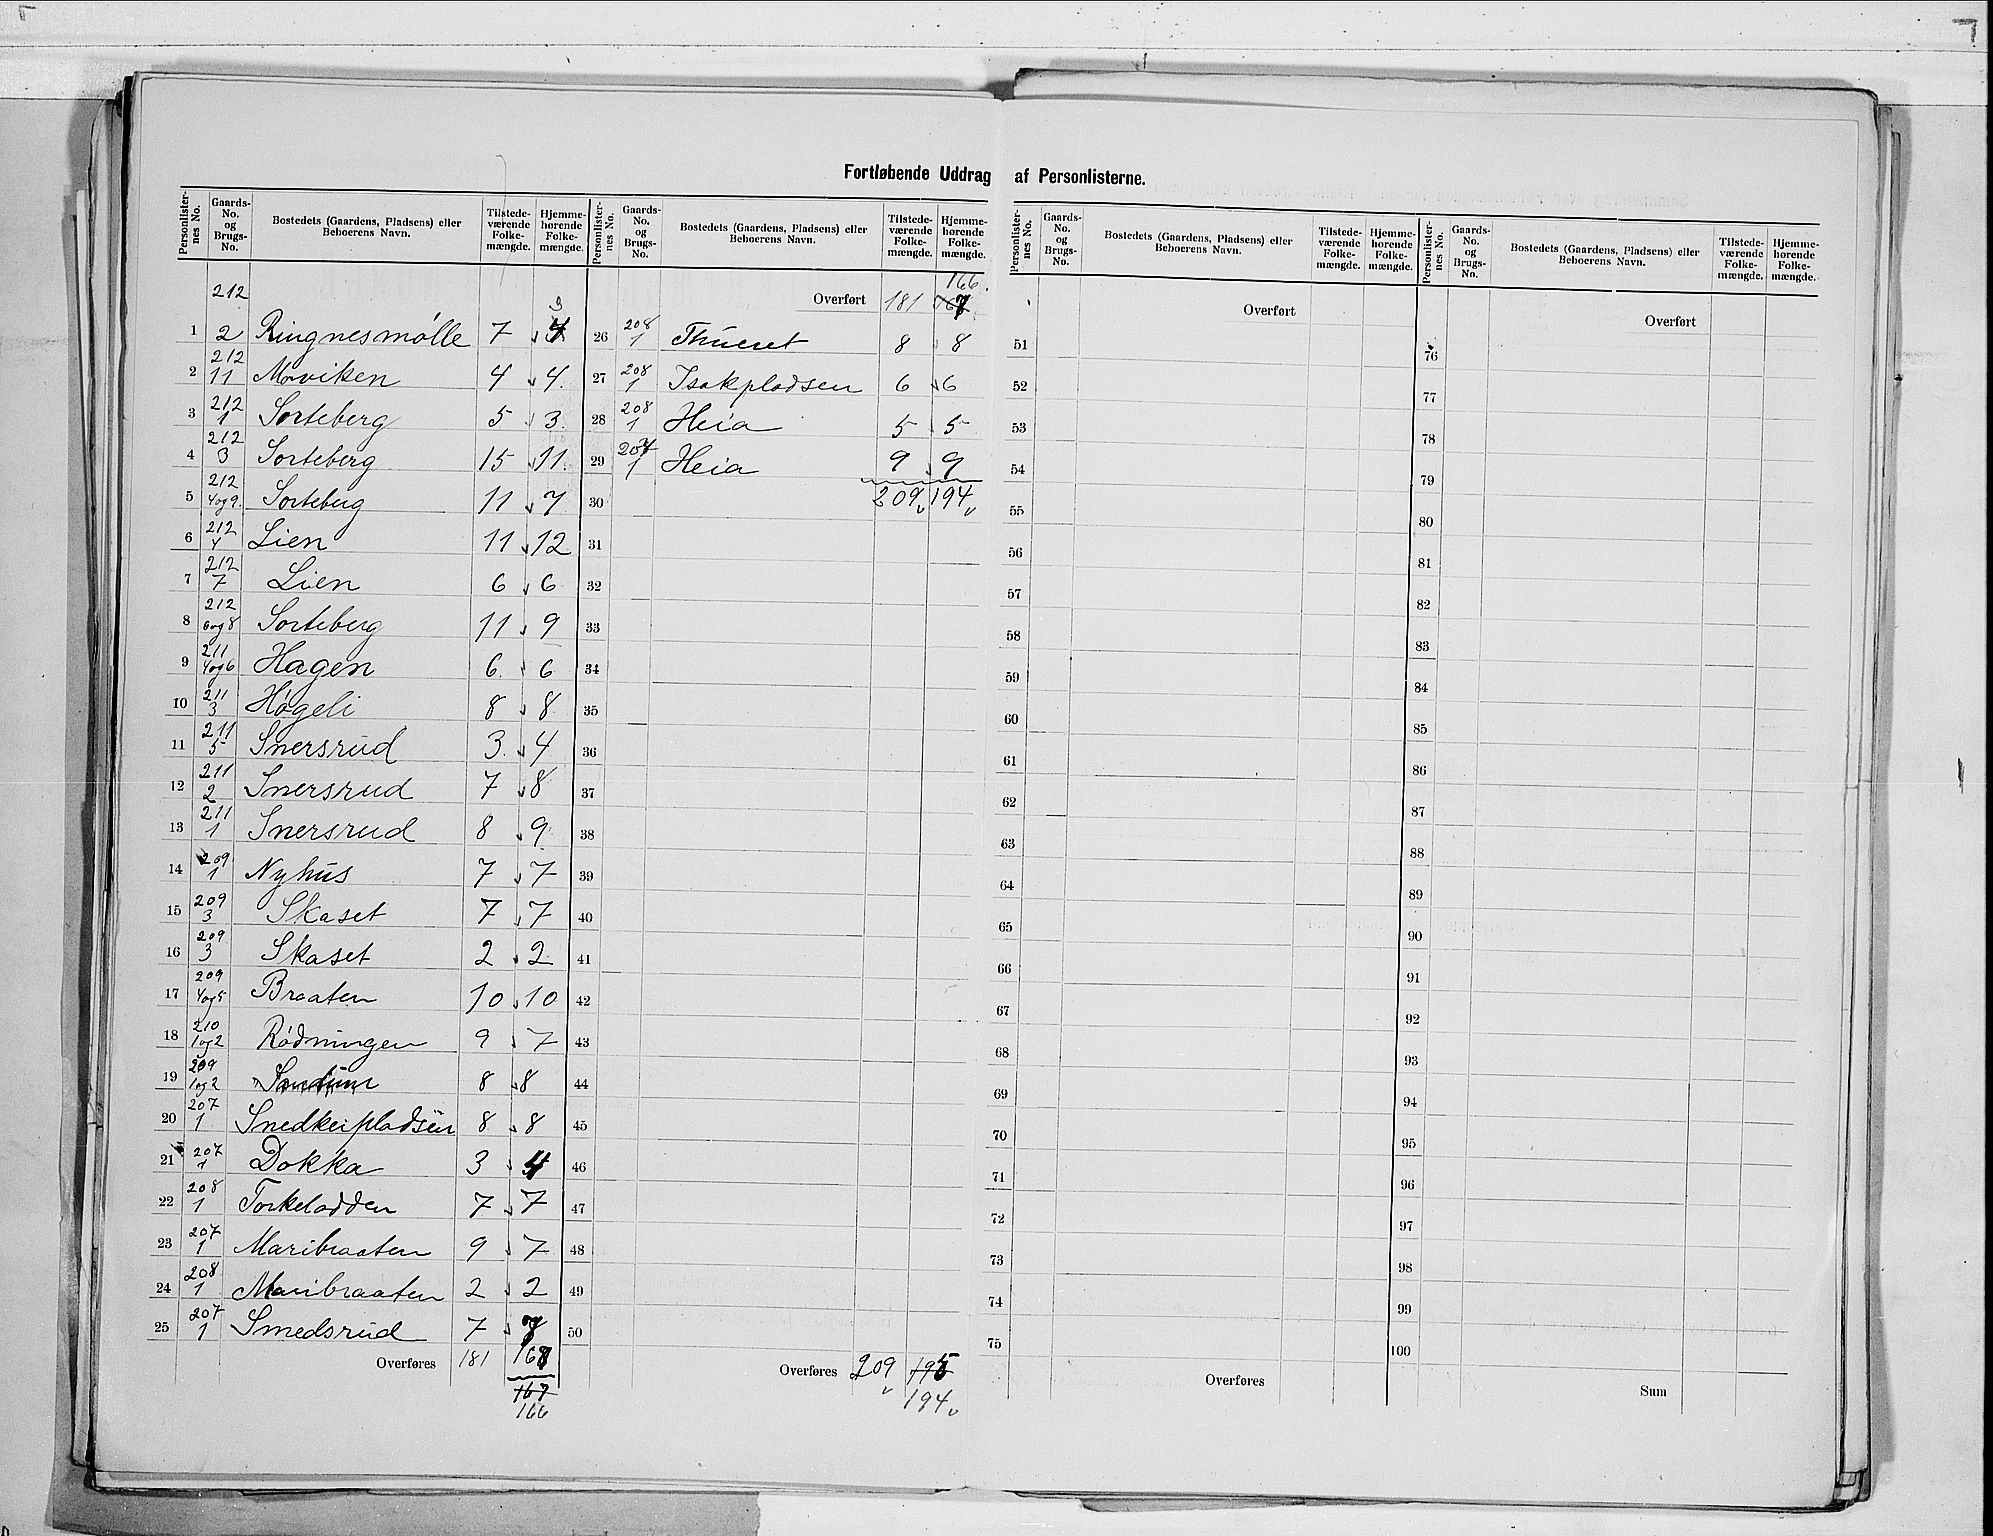 Fortløbende Uddrag af Personlisterne.
Personlister-nes No. | Gaards-No. og Brugs-No. | Bostedets (Gaardens, Pladsens) eller Beboerens Navn. | Tilstede-værende Folke-mængde. | Hjemme-hørende Folke-mængde.
1 | 212 2 | Ringnesmølle | 7 | 3
2 | 212 11 | Moviken | 4 | 4
3 | 212 1 | Sorteberg | 5 | 3
4 | 212 3 | Sorteberg | 15 | 11
5 | 212 4og9. | Sorteberg | 11 | 7
6 | 212 4 | Lien | 11 | 12
7 | 212 7 | Lien | 6 | 6
8 | 212 6og8 | Sorteberg | 11 | 9
9 | 211 4og6 | Hagen | 6 | 6
10 | 211 3 | Høgeli | 8 | 8
11 | 211 5 | Snersrud | 3 | 4
12 | 211 2 | Snersrud | 7 | 8
13 | 211 1 | Snersrud | 8 | 9
14 | 209 1 | Nyhus | 7 | 7
15 | 209 3 | Skaset | 7 | 7
16 | 209 3 | Skaset | 2 | 2
17 | 209 4og5 | Braaten | 10 | 10
18 | 210 1og2 | Rødningen | 9 | 7
19 | 209 1og2 | 8 | 8
20 | 207 1 | Snedkerpladsen | 8 | 8
21 | 207 1 | Dokka | 3 | 4
22 | 208 1 | Torkeladden | 7 | 7
23 | 207 1 | Maribraaten | 9 | 7
24 | 208 1 | Maribraaten | 2 | 2
25 | 207 1 | Smedsrud | 7 | 7
Overføres 181 167
167
166
Personlister-nes No. | Gaards-No. og Brugs-No. | Bostedets (Gaardens, Pladsens) eller Beboerens Navn. | Tilstede-værende Folke-mængde. | Hjemme-hørende Folke-mængde.
166.
Overført 181 167
26 | 208 1 | Thueret | 8 | 8
27 | 208 1 | Isakpladsen | 6 | 6
28 | 208 1 | Heia | 5 | 5
29 | 207 1 | Heia | 9 | 9
30 | 209 | 194
31
32
33
34
35
36
37
38
39
40
41
42
43
44
45
46
47
48
49
50
Overføres 209 195
194
Personlister-nes No. | Gaards-No. og Brugs-No. | Bostedets (Gaardens, Pladsens) eller Beboerens Navn. | Tilstede-værende Folke-mængde. | Hjemme-hørende Folke-mængde.
Overført
51
52
53
54
55
56
57
58
59
60
61
62
63
64
65
66
67
68
69
70
71
72
73
74
75
Overføres
Personlister-nes No. | Gaards-No. og Brugs-No. | Bostedets (Gaardens, Pladsens) eller Beboerens Navn. | Tilstede-værende Folke-mængde. | Hjemme-hørende Folke-mængde.
Overført
76
77
78
79
80
81
82
83
84
85
86
87
88
89
90
91
92
93
94
95
96
97
98
99
100
Sum